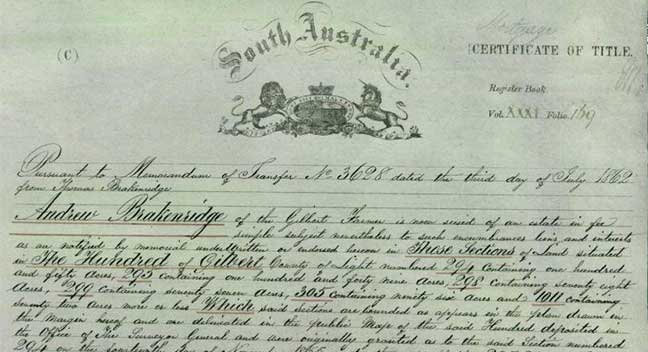 Mortgage
(C)
South Australia.
CERTIFICATE OF TITLE.
Register Book,
Vol. XXXI Folio 149
Pursuant to Memorandum of Transfer No 3628 dated the third day of July 1862
from Thomas Brakenridge
Andrew Brakenridge of the Gilbert Farmer is now seised of an estate in fee
simple subject nevertheless to such encumbrances liens and interests
as are notified by memorial underwritten or endorsed hereon in Those Sections of Land situated
in The Hundred of Gilbert County of Light numbered 294 containing one hundred
and fifty Acres, 295 containing one hundred and forty nine Acres, 298 containing seventy eight
Acres, 299 containing seventy seven Acres, 303 containing ninety six Acres and 1011 containing
seventy two Acres more or less Which said sections are bounded as appears in the plan drawn in
the margin hereof and are delineated in the public Map of the said Hundred deposited in
the Office of The Surveyor General and were originally granted as to the said Section numbered
294 on the fourteenth day of